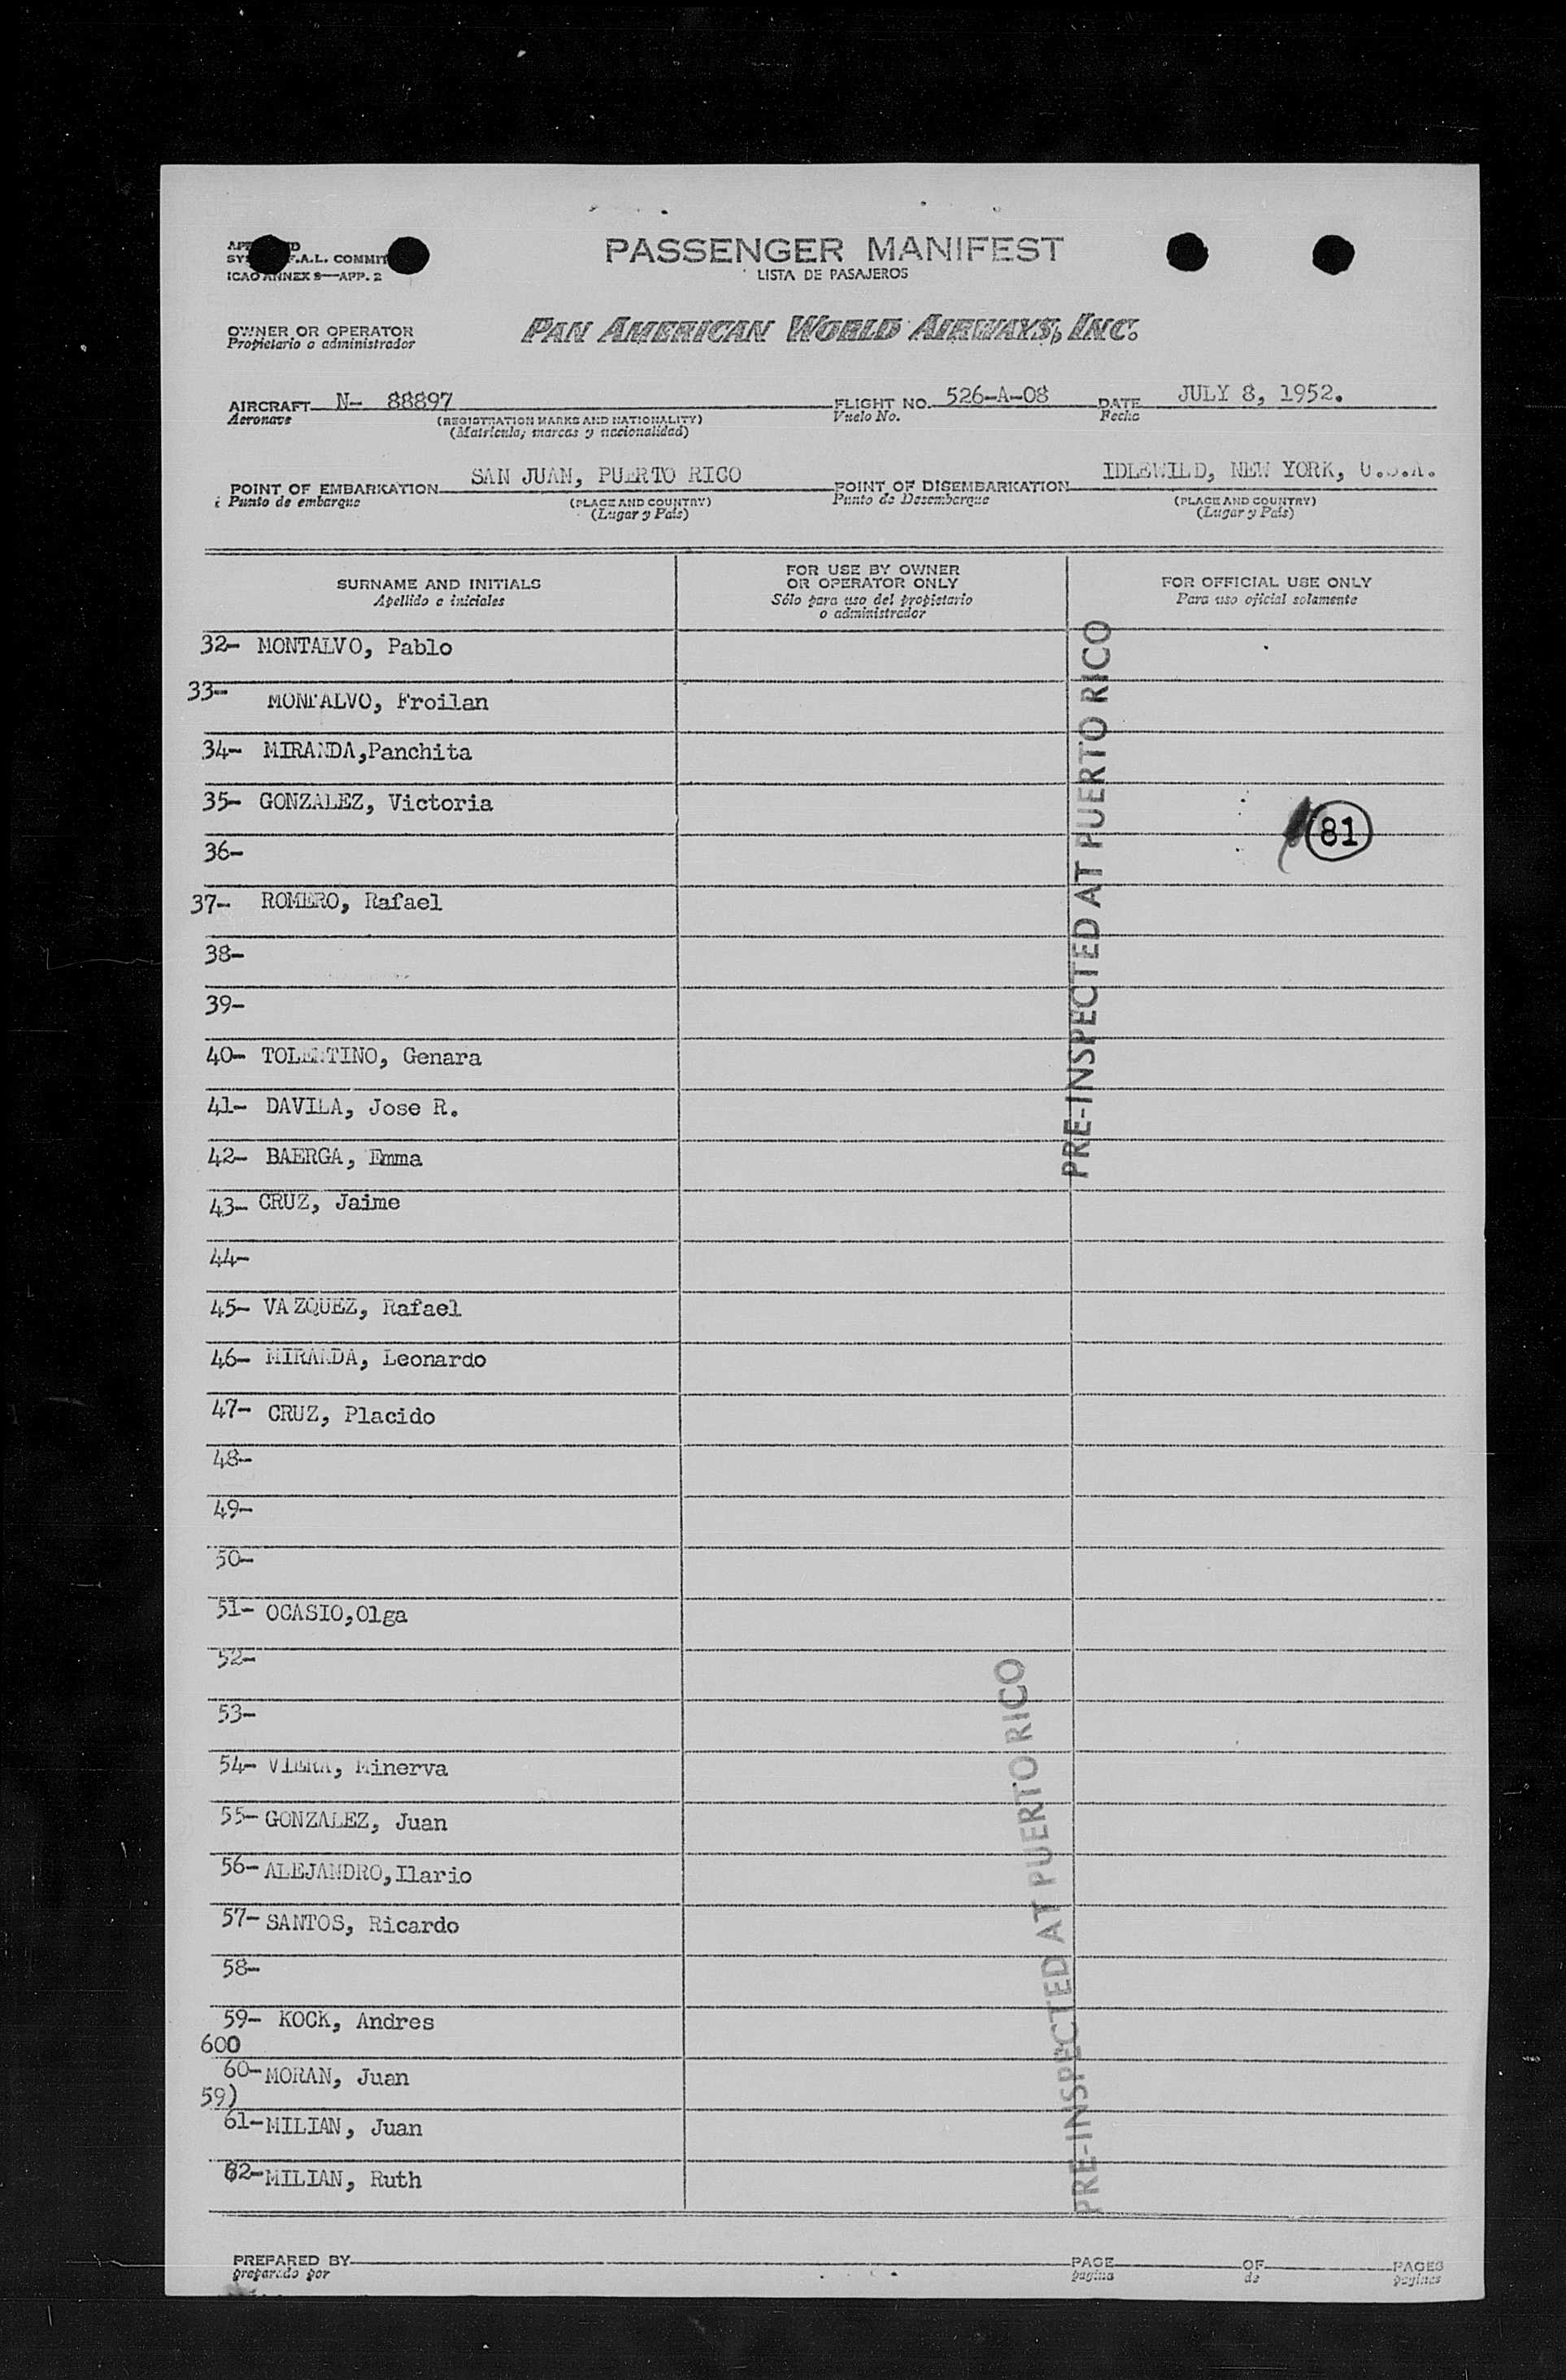 PASSENGER MANIFEST
LISTA DE PASAJEROS
F.A.L. COMMIT
ICAO ANNEX 9—APP. 2
OWNER OR OPERATOR
Propietario o administrador
PAN AMERICAN WORLD AIRWAYS, INC.
AIRCRAFT N- 88897
Aeronave
(REGISTRATION MARKS AND NATIONALITY)
(Matricula, marcas y nacionalidad)
FLIGHT NO. 526-A-08
Vuelo No.
DATE JULY 8, 1952.
Fecha
POINT OF EMBARKATION SAN JUAN, PUERTO RICO
Punto de embarque
(PLACE AND COUNTRY)
(Lugar y País)
POINT OF DISEMBARKATION IDLEWILD, NEW YORK, U.S.A.
Punto de Desembarque
(PLACE AND COUNTRY)
(Lugar y País)
SURNAME AND INITIALS
Apellido e iniciales
FOR USE BY OWNER
OR OPERATOR ONLY
Sólo para uso del propietario
o administrador
FOR OFFICIAL USE ONLY
Para uso oficial solamente
32- MONTALVO, Pablo
33- MONTALVO, Froilan
34- MIRANDA,Panchita
35- GONZALEZ, Victoria
81
36-
37- ROMERO, Rafael
38-
39-
40- TOLENTINO, Genara
41- DAVILA, Jose R.
42- BAERGA, Emma
43- CRUZ, Jaime
44-
45- VAZQUEZ, Rafael
46- MIRANDA, Leonardo
47- CRUZ, Placido
48-
49-
50-
51- OCASIO,Olga
52-
53-
54- VIERA, Minerva
55- GONZALEZ, Juan
56- ALEJANDRO,Ilario
57- SANTOS, Ricardo
58-
59- KOCK, Andres
600
60- MORAN, Juan
59)
61- MILIAN, Juan
62- MILIAN, Ruth
PRE-INSPECTED AT PUERTO RICO
PRE-INSPECTED AT PUERTO RICO
PREPARED BY
preparado por
PAGE
pagina
OF
de
PAGES
paginas